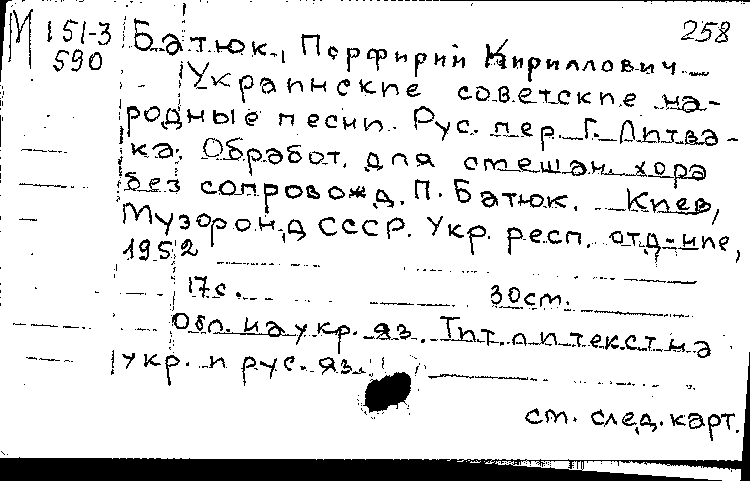 258
М 151-3
590
Батюк, Порфирий Кириллович
Украинские советские на-
родные песни. Рус. пер. Г. Литва-
ка. Обработ. для смешан. хора
без сопровожд. П. Батюк. Киев,
Музфонд СССР. Укр. респ. отд-ние,
1952
17с. 30см.
Обл. на укр. яз. Тит. л и текст на
укр. и рус. яз.
см. след. карт.